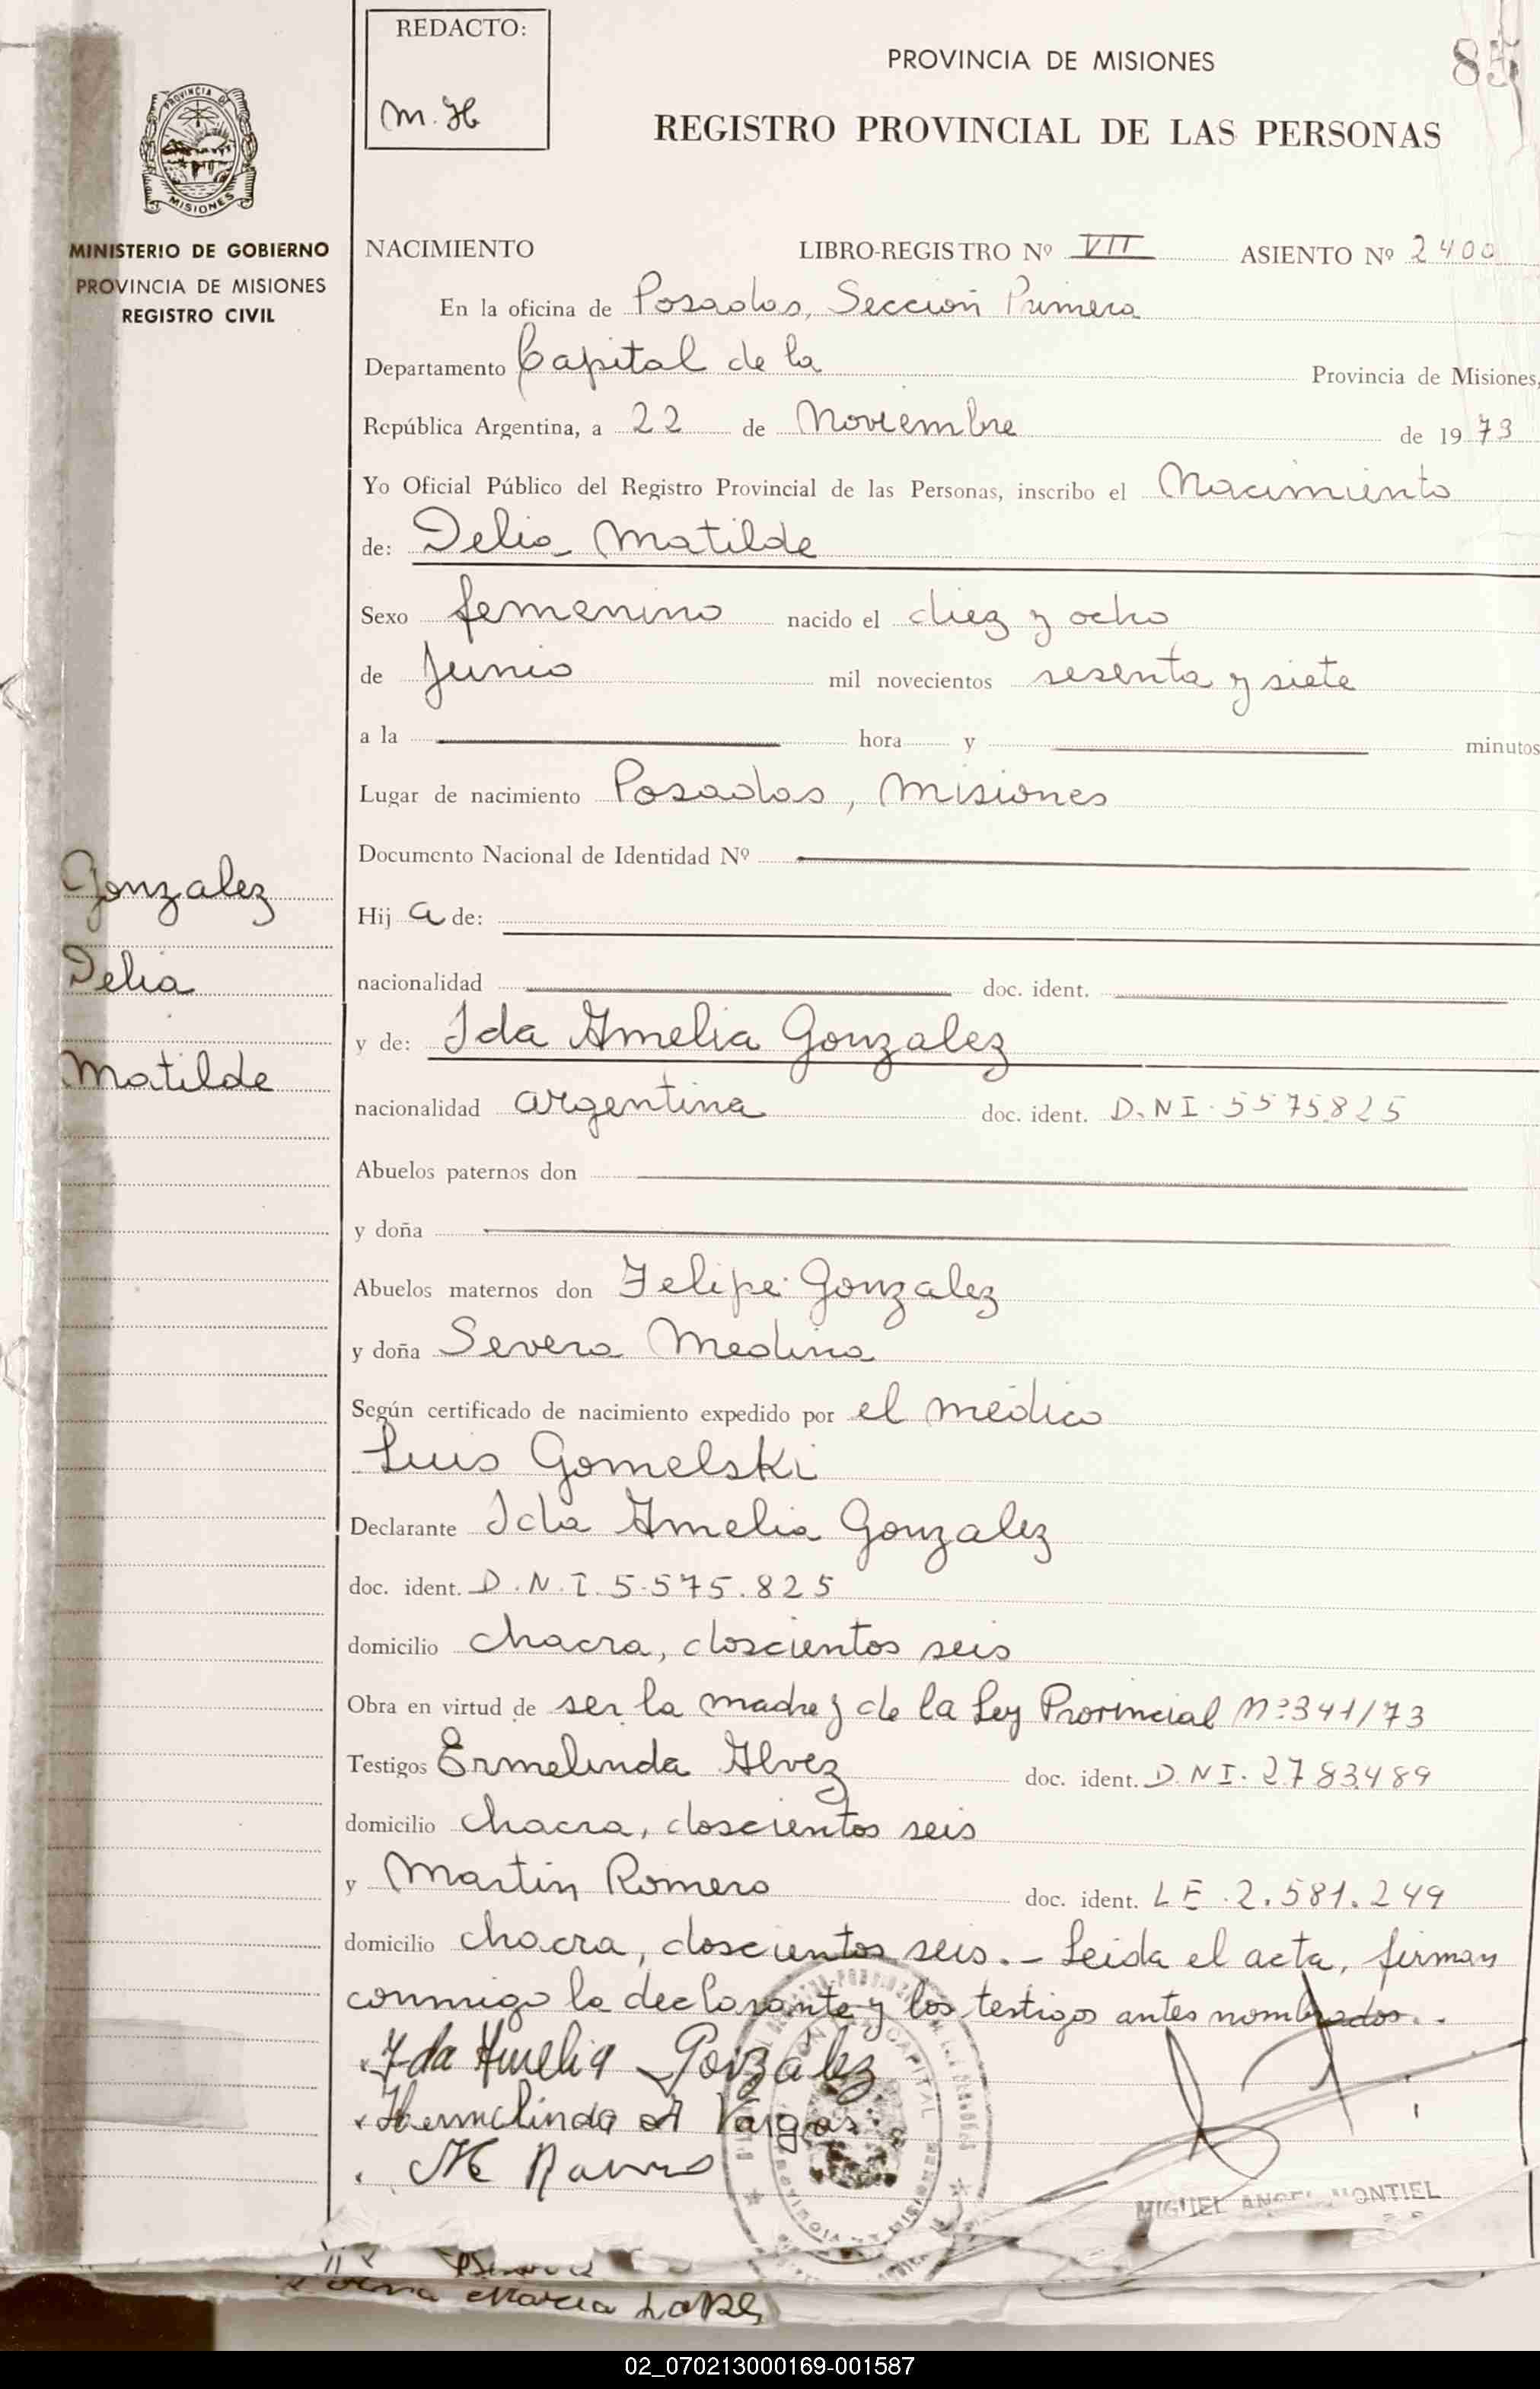 REDACTO:
M. H
PROVINCIA DE MISIONES
85
REGISTRO PROVINCIAL DE LAS PERSONAS
PROVINCIA DE
MISIONES
MINISTERIO DE GOBIERNO
PROVINCIA DE MISIONES
REGISTRO CIVIL
NACIMIENTO LIBRO-REGISTRO Nº VII ASIENTO Nº 2400
En la oficina de Posadas, Sección Primera
Departamento Capital de la Provincia de Misiones,
República Argentina, a 22 de Noviembre de 1973
Yo Oficial Público del Registro Provincial de las Personas, inscribo el Nacimiento
de: Delia Matilde
Sexo femenino nacido el diez y ocho
de Junio mil novecientos sesenta y siete
a la hora y minutos
Lugar de nacimiento Posadas, Misiones
Documento Nacional de Identidad Nº
Gonzalez
Delia
Matilde
Hija de:
nacionalidad doc. ident.
y de: Ida Amelia Gonzalez
nacionalidad argentina doc. ident. D.N.I. 5575825
Abuelos paternos don
y doña
Abuelos maternos don Felipe Gonzalez
y doña Severa Medina
Según certificado de nacimiento expedido por el médico
Luis Gomelski
Declarante Ida Amelia Gonzalez
doc. ident. D.N.I. 5.575.825
domicilio chacra, doscientos seis
Obra en virtud de ser la madre y de la Ley Provincial Nº 341/73
Testigos Ermelinda Alvez doc. ident. D.N.I. 2783489
domicilio chacra, doscientos seis
y Martin Romero doc. ident. LE. 2.581.249
domicilio chacra, doscientos seis.- Leida el acta, firman
conmigo la declarante y los testigos antes nombrados..
Ida Amelia Gonzalez
Hermelinda A Vargas
CAPITAL
MIGUEL ANGEL MONTIEL
Maria
02_070213000169-001587